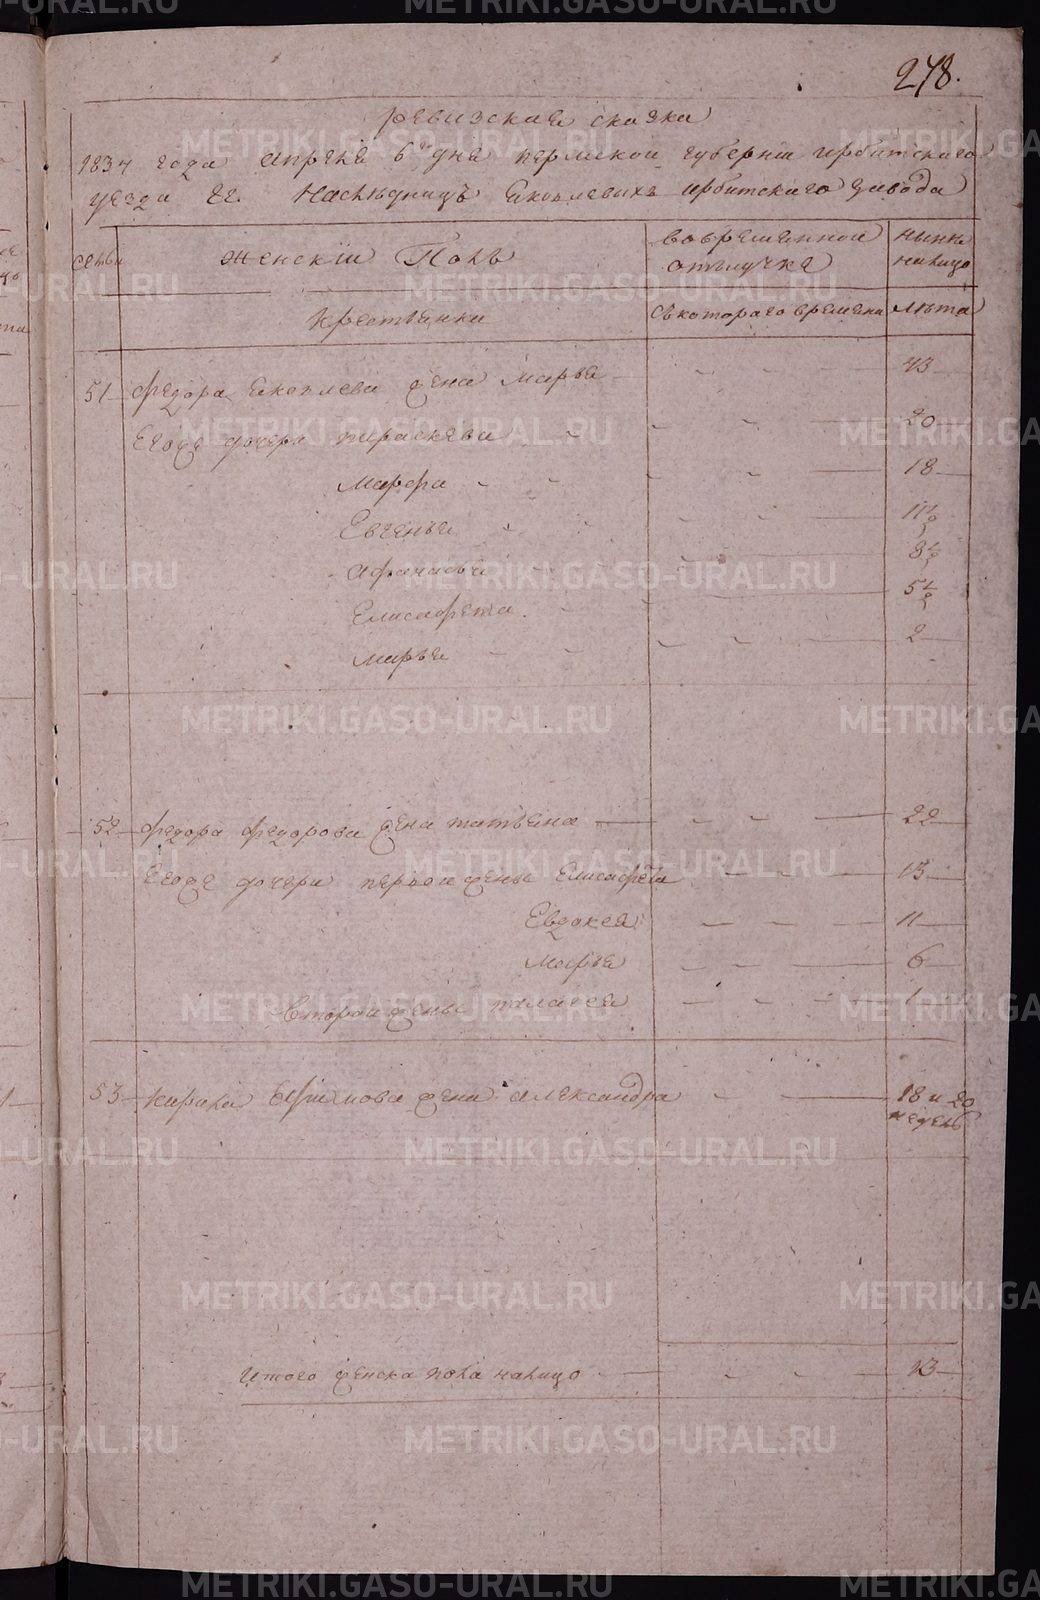 278.
Ревизская сказка
1834 года апреля 6 дня пермской губернии ирбитского
уезда гг. Наследниць Яковлевыхъ ирбитского завода
семьи
Женский Полъ
вовременной отълучке
ныне налицо
Крестьянки
Съкоторого времени
лѣта
51 Федора Яковлева жена Марья 43
Егоже дочери пираскевы 20
Марфа 18
Евгенья 11½
Афанасья 8½
Елисафета 5½
Марья 2
52 Федора Федорова жена татьяна 22
Егоже дочери первой жены Елисафета 13
Евдокея 11
Марья 6
Второй жены пелагея 1
53 Кирила Ефимова жена александра 18 и 20 недель
Итого женска пола налицо 13
METRIKI.GASO-URAL.RU